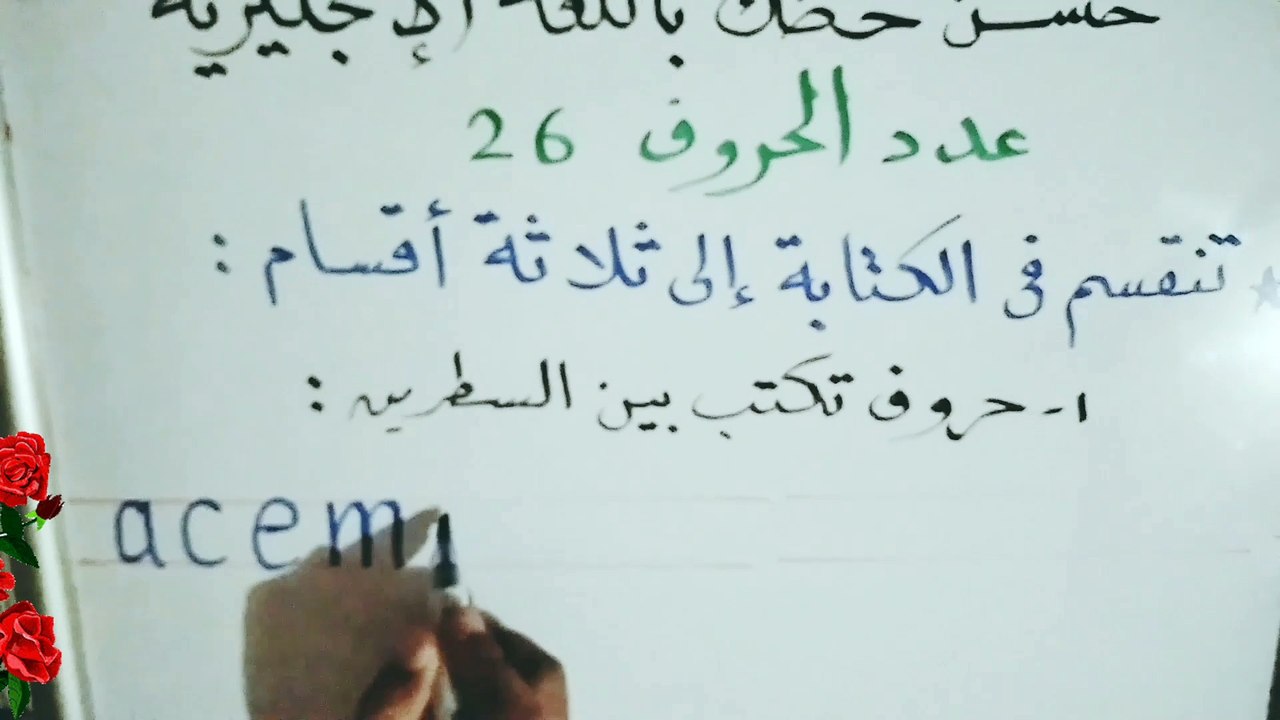 حسن خطك باللغة الإنجليزية
عدد الحروف 26
تنقسم في الكتابة إلى ثلاثة أقسام :
١- حروف تكتب بين السطرين :
a c e m